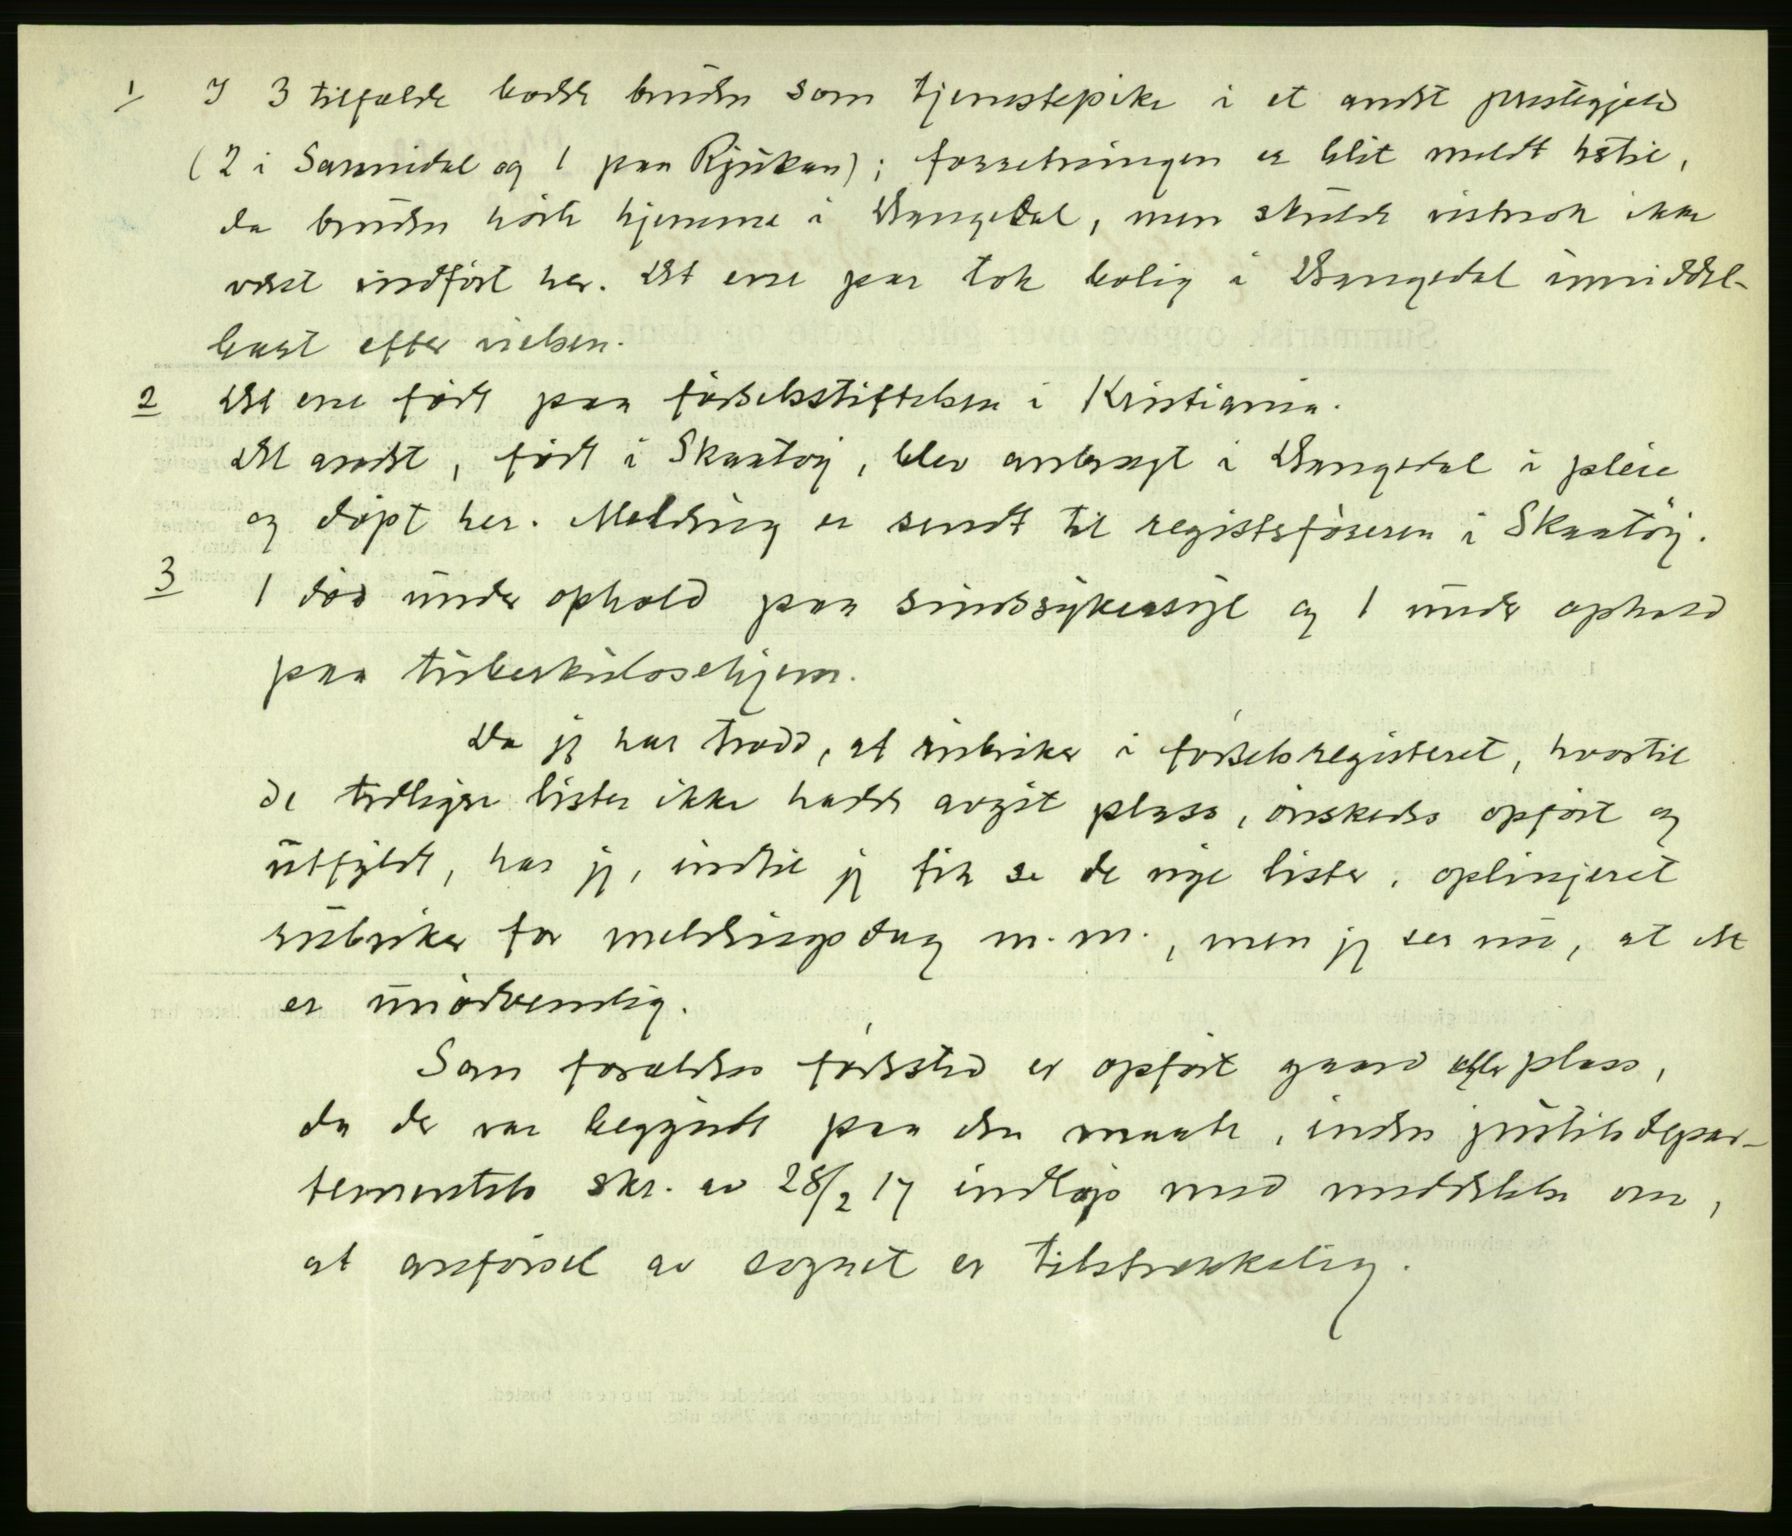 1/ I 3 tilfælde bodde bruden som tjenestepike i et andet prestegjeld
(2 i Sannidal og 1 paa Rjukan); forretningen er blit meldt hitil,
da bruden hørte hjemme i Drangedal, men skulde vistnok ikke
været indført her. Det ene par tok bolig i Drangedal umiddel-
bart efter vielsen.
2 Det ene født paa fødselsstiftelsen i Kristiania.
Det andet, født i Skaatøy, blev anbragt i Drangedal i pleie
og døpt her. Melding er sendt til registerføreren i Skaatøy.
3 1 død under ophold paa sindssykeasyl og 1 under ophold
paa tuberkulosehjem.
Da jeg har trodd, at rubriker i fødselsregisteret, hvortil
de tidligere lister ikke hadde avgit plass, ønskedes opført og
utfyldt, har jeg, indtil jeg fik se de nye lister, oplinjeret
rubriker for meldingsdag m.m., men jeg ser nu, at det
er unødvendig.
Som forældres fødested er opført gaard eller plass,
da der var begyndt paa den maate, inden justitsdepar-
tementets skr. av 28/2 17 indløp med meddelelse om,
at anførsel av sognet er tilstrækkelig.